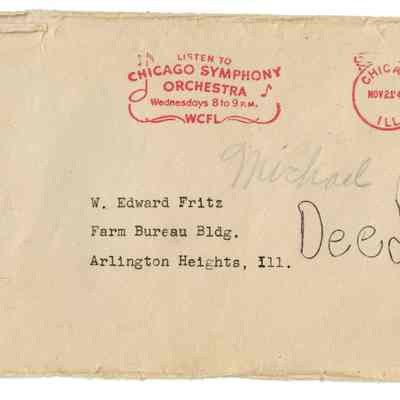 LISTEN TO
CHICAGO SYMPHONY
ORCHESTRA
Wednesdays 8 to 9 P.M.
WCFL
CHICA
NOV 21 '4
ILL
Michael
W. Edward Fritz
Farm Bureau Bldg.
Arlington Heights, Ill.
Deed